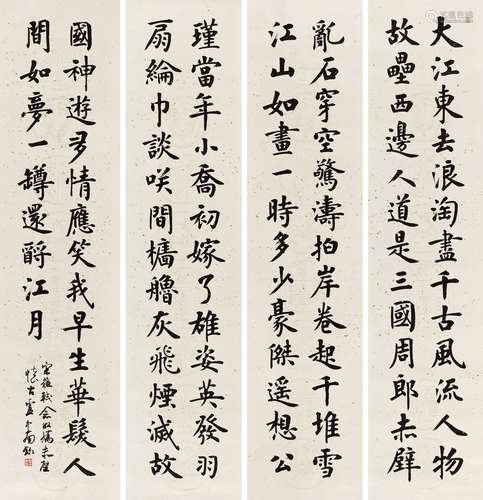 大江東去浪淘盡千古風流人物
故壘西邊人道是三國周郎赤壁
亂石穿空驚濤拍岸卷起千堆雪
江山如畫一時多少豪傑遥想公
瑾當年小喬初嫁了雄姿英發羽
扇綸巾談咲間檣艣灰飛煙滅故
國神遊多情應笑我早生華髮人
間如夢一罇還酹江月